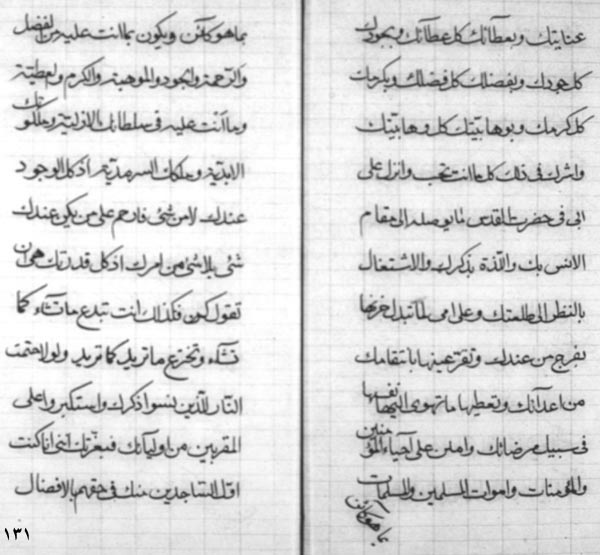 عنايتك وبعطآئك كل عطآئك وبجودك
كل جودك وبفضلك كل فضلك وبكرمك
كل كرمك وبوهابيتك كل وهابيتك
واشرك فى ذلك كل ما انت تحب وانزل على
ابى فى حضرت القدس ما يوصله الى مقام
الانس بك واللذة بذكرك والاشتغال
بالنظر الى طلعتك وعلى امى ما تبدل حزنها
بفرج من عندك وتقر عينها بانتقامك
من اعدآئك وتعطيها ما تهوى اليها نفسها
فى سبيل مرضاتك وامنن على احياء المؤمنين
والمؤمنات واموات المسلمين والمسلمات
بما هو كائن
بما هو كائن ويكون بما انت عليه من الفضل
والرحمة والجود والموهبة والكرم والعطية
وما انت عليه فى سلطانك الازلية وملكوتك
الابدية وملكك السرمدية اذ كل الوجود
عندك لامن شئ فارحم على من يكن عندك
شئ بلا شئ من امرك اذ كل قدرتك هى ان
تقول كن فكذلك انت تبدع ما تشآء كما
تشآء وتخترع ما تريد كما تريد ولولا حتمت
النار للذين ينسوا ذكرك واستكبروا على
المقربين من اوليآئك فبعزتك اننى انا كنت
اقل الساجدين منك فى حقهم بالافضال
١٣١